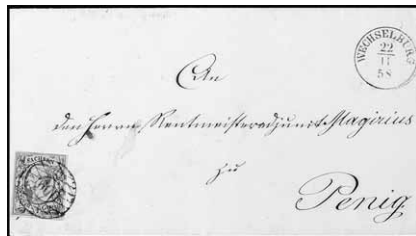 WECHSELBURG
22
11
58
An
den Herrn Rentmeisteradjunct Magirius
zu
Penig
SACHSEN